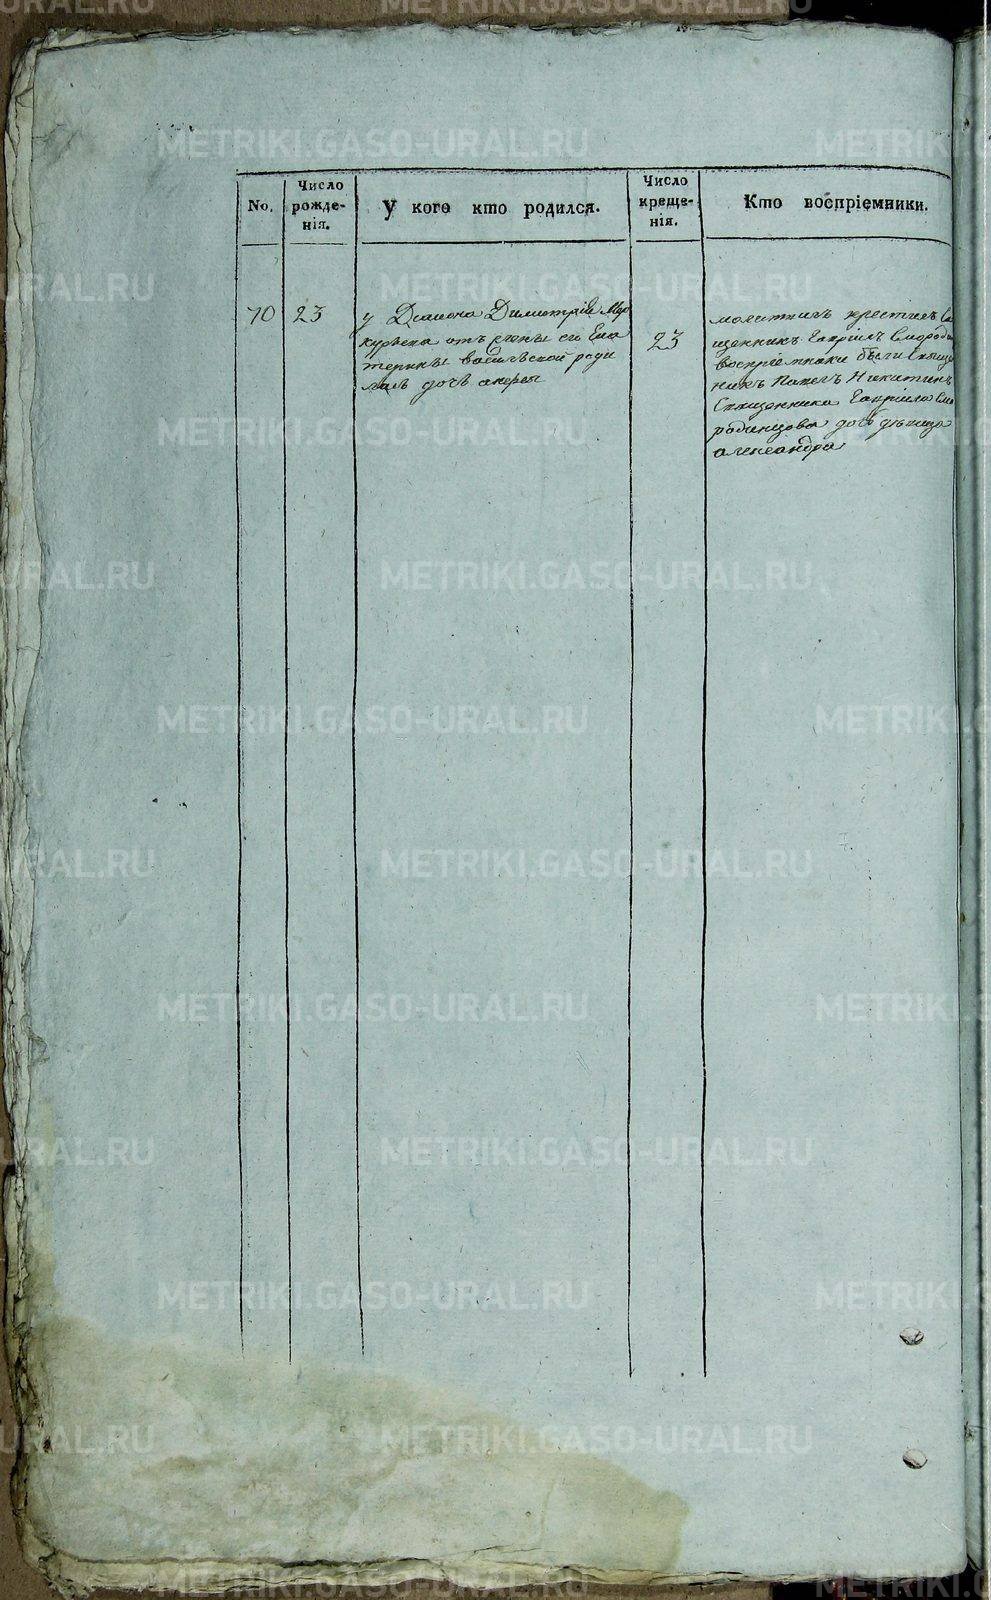 No.
Число рожде- нія.
У кого кто родился.
Число креще- нія.
Кто воспріемники.
70
23
у Діакона Димитрія Мер
курьева отъ жены его Ека
терины васильевой роди
лась дочь
23
молитвилъ крестилъ Свя
щенникъ Гавріилъ Смородин
воспріемники были Священ
никъ Павелъ Никитинъ
Священника Гавріила Смо
родинцова дочь дѣвица
александра
METRIKI.GASO-URAL.RU